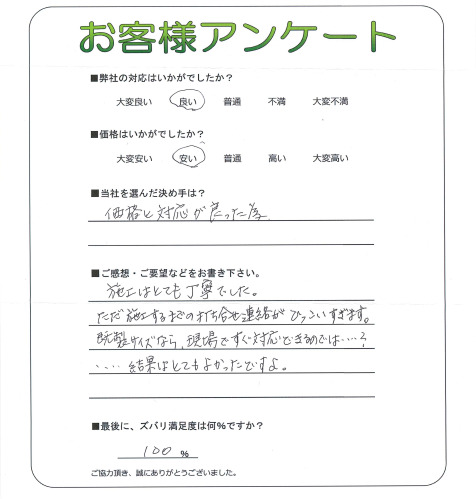 お客様アンケート
■弊社の対応はいかがでしたか？
大変良い 良い 普通 不満 大変不満
■価格はいかがでしたか？
大変安い 安い 普通 高い 大変高い
■当社を選んだ決め手は？
価格と対応が良った為
■ご感想・ご要望などをお書き下さい。
施工はとても丁寧でした。
ただ施工するまでの打ち合せ連絡が すぎます。
既製サイズなら、現場ですぐ対応できるのでは‥‥？
‥‥結果はとてもよかったですよ。
■最後に、ズバリ満足度は何%ですか？
100 %
ご協力頂き、誠にありがとうございました。